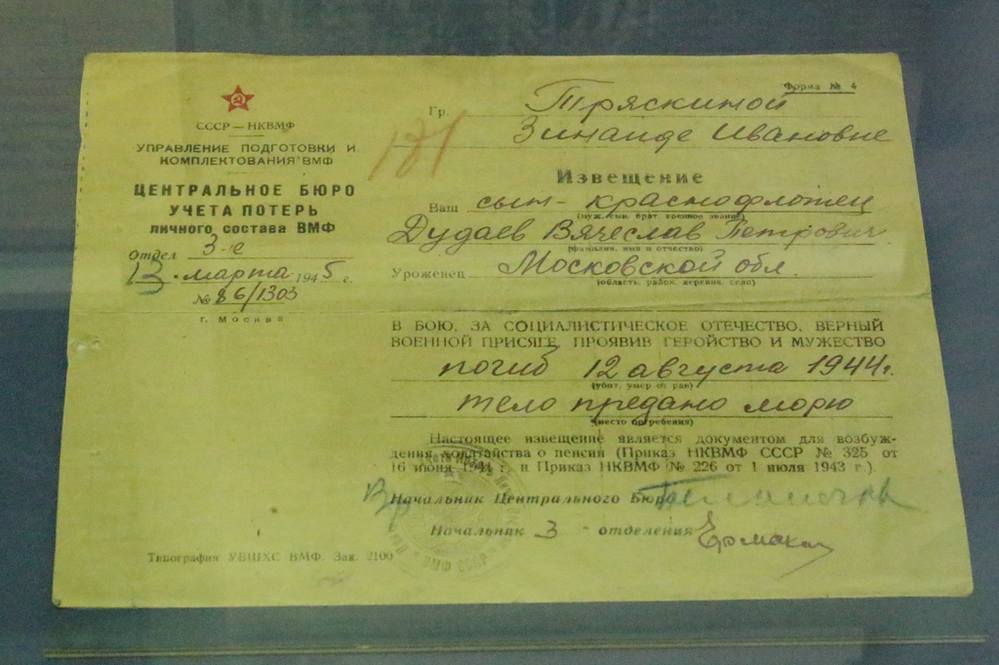 СССР — НКВМФ
УПРАВЛЕНИЕ ПОДГОТОВКИ И
КОМПЛЕКТОВАНИЯ ВМФ
ЦЕНТРАЛЬНОЕ БЮРО
УЧЕТА ПОТЕРЬ
ЛИЧНОГО СОСТАВА ВМФ
Отдел 3-е
13 марта 1945 г.
№ 86/1303
г. Москва
Типография УВШХС ВМФ. Зак. 2100
181
Форма № 4
Гр. Тряскиной
Зинаиде Ивановне
Извещение
Ваш сын - краснофлотец
(муж, сын, брат, военное звание)
Дудаев Вячеслав Петрович
(фамилия, имя и отчество)
Уроженец Московской обл.
(область, район, деревня, село)
В БОЮ, ЗА СОЦИАЛИСТИЧЕСКОЕ ОТЕЧЕСТВО, ВЕРНЫЙ
ВОЕННОЙ ПРИСЯГЕ, ПРОЯВИВ ГЕРОЙСТВО И МУЖЕСТВО
погиб 12 августа 1944 г.
(убит, умер от ран)
тело предано морю
(место погребения)
Настоящее извещение является документом для возбуж-
дения ходатайства о пенсии (Приказ НКВМФ СССР № 325 от
16 июня 1941 г. и Приказ НКВМФ № 226 от 1 июля 1943 г.).
Вр Начальник Центрального Бюро
Начальник 3 - отделения
ВМФ СССР